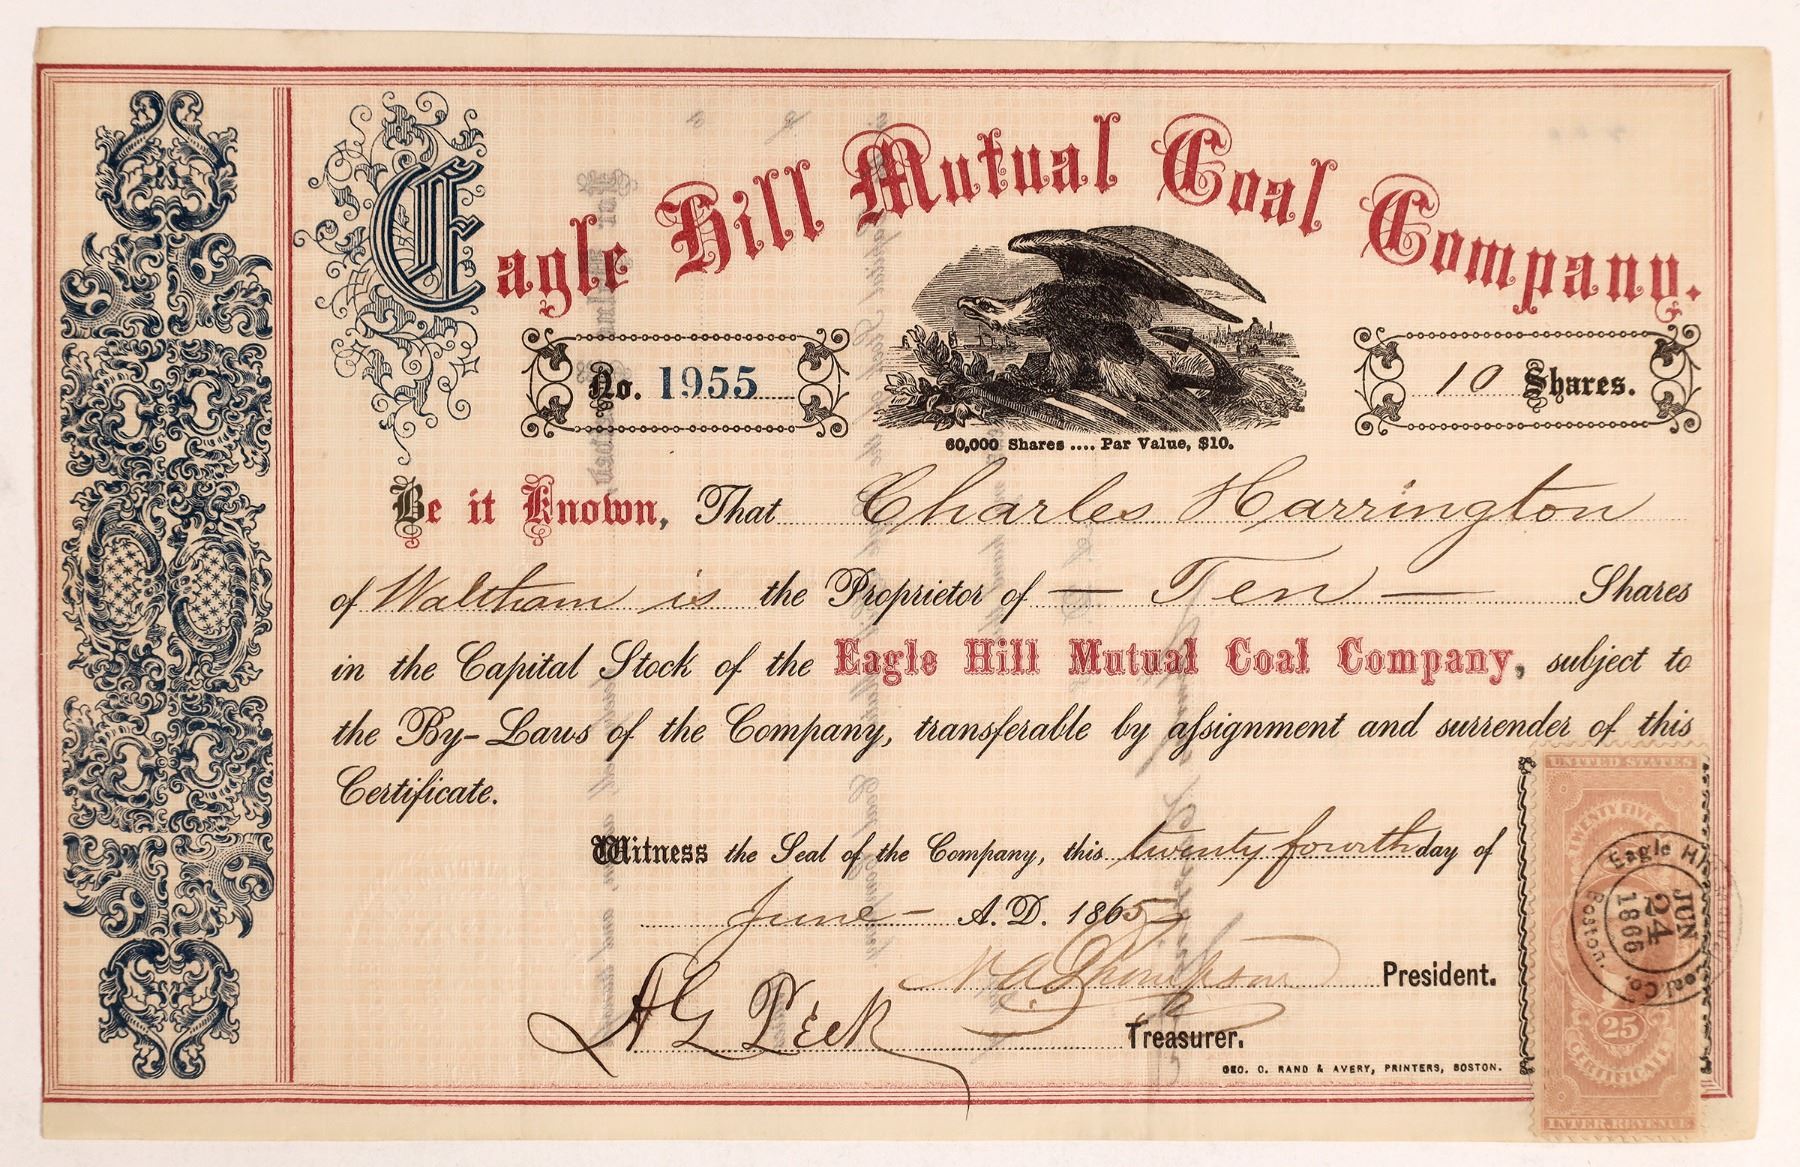 Eagle Hill Mutual Coal Company.
No. 1955
10 Shares.
60,000 Shares .... Par Value, $10.
Be it Known, That Charles Harrington
of Waltham is the Proprietor of — Ten — Shares
in the Capital Stock of the Eagle Hill Mutual Coal Company, subject to
the By-Laws of the Company, transferable by assignment and surrender of this
Certificate.
Witness the Seal of the Company, this twenty fourth day of
June - A.D. 1865
N A Thompson President.
A G Peck Treasurer.
GEO. C. RAND & AVERY, PRINTERS, BOSTON.
UNITED STATES
TWENTY FIVE
Eagle Hill
Coal Co.
Boston.
JUN
24
1865
25
CERTIFICATE
INTER. REVENUE